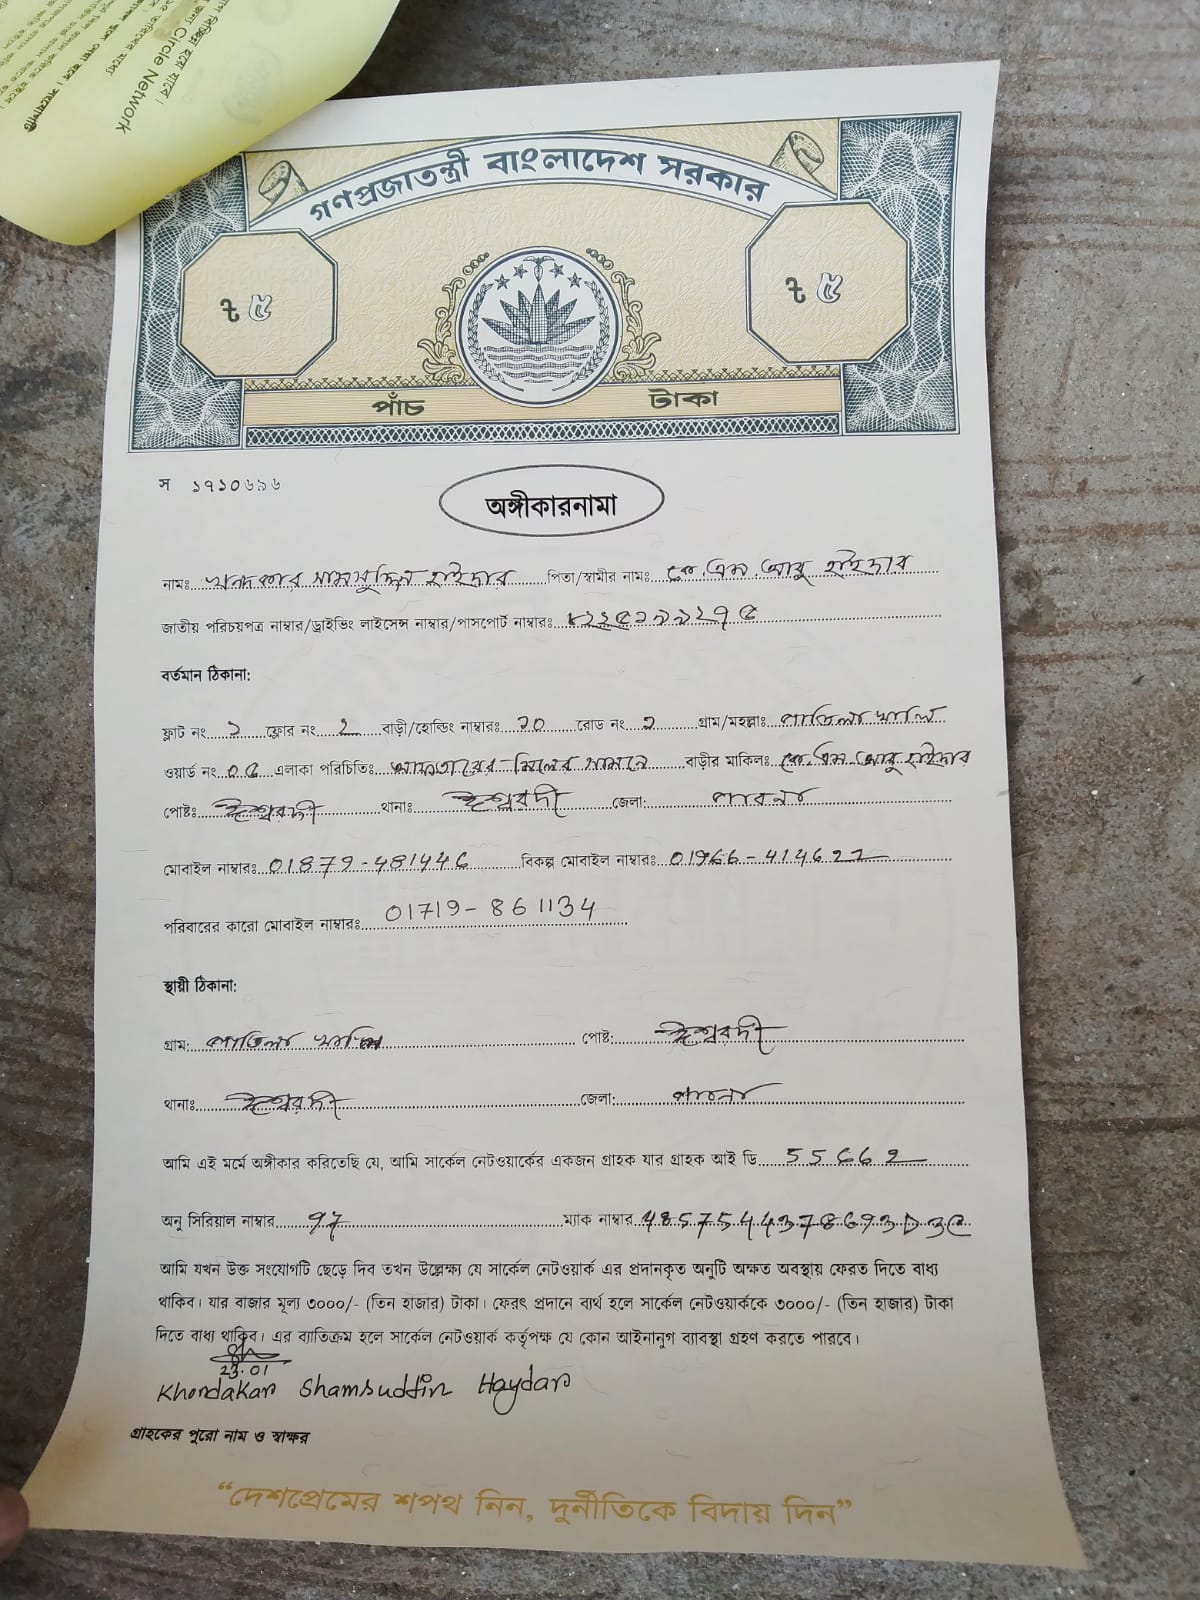 Circle Network
গণপ্রজাতন্ত্রী বাংলাদেশ সরকার
৳ ৫ ৳ ৫
পাঁচ টাকা
স ১৭১০৬৯৬
অঙ্গীকারনামা
নামঃ খন্দকার সামসুদ্দিন হাইদার পিতা/স্বামীর নামঃ কে.এম.আবু হাইদার
জাতীয় পরিচয়পত্র নাম্বার/ড্রাইভিং লাইসেন্স নাম্বার/পাসপোর্ট নাম্বারঃ
বর্তমান ঠিকানা:
ফ্লাট নং ১ ফ্লোর নং ১ বাড়ী/হোল্ডিং নাম্বারঃ রোড নং গ্রাম/মহল্লাঃ
ওয়ার্ড নং ০৫ এলাকা পরিচিতিঃ মিলের সামনে বাড়ীর মাকিলঃ কে.এম.আবু হাইদার
পোষ্টঃ ঈশ্বরদী থানাঃ ঈশ্বরদী জেলা: পাবনা
মোবাইল নাম্বারঃ 01879-481446 বিকল্প মোবাইল নাম্বারঃ 01966-414622
পরিবারের কারো মোবাইল নাম্বারঃ 01719-861134
স্থায়ী ঠিকানা:
গ্রাম: পোষ্ট: ঈশ্বরদী
থানাঃ ঈশ্বরদী জেলা: পাবনা
আমি এই মর্মে অঙ্গীকার করিতেছি যে, আমি সার্কেল নেটওয়ার্কের একজন গ্রাহক যার গ্রাহক আই ডি 55662
অনু সিরিয়াল নাম্বার 97 ম্যাক নাম্বার 4857544378693D3C
আমি যখন উক্ত সংযোগটি ছেড়ে দিব তখন উল্লেক্ষ্য যে সার্কেল নেটওয়ার্ক এর প্রদানকৃত অনুটি অক্ষত অবস্থায় ফেরত দিতে বাধ্য
থাকিব। যার বাজার মূল্য ৩০০০/- (তিন হাজার) টাকা। ফেরৎ প্রদানে ব্যর্থ হলে সার্কেল নেটওয়ার্ককে ৩০০০/- (তিন হাজার) টাকা
দিতে বাধ্য থাকিব। এর ব্যাতিক্রম হলে সার্কেল নেটওয়ার্ক কর্তৃপক্ষ যে কোন আইনানুগ ব্যাবস্থা গ্রহণ করতে পারবে।
23.01
Khondakar Shamsuddin Haydar
গ্রাহকের পুরো নাম ও স্বাক্ষর
“দেশপ্রেমের শপথ নিন, দুর্নীতিকে বিদায় দিন”